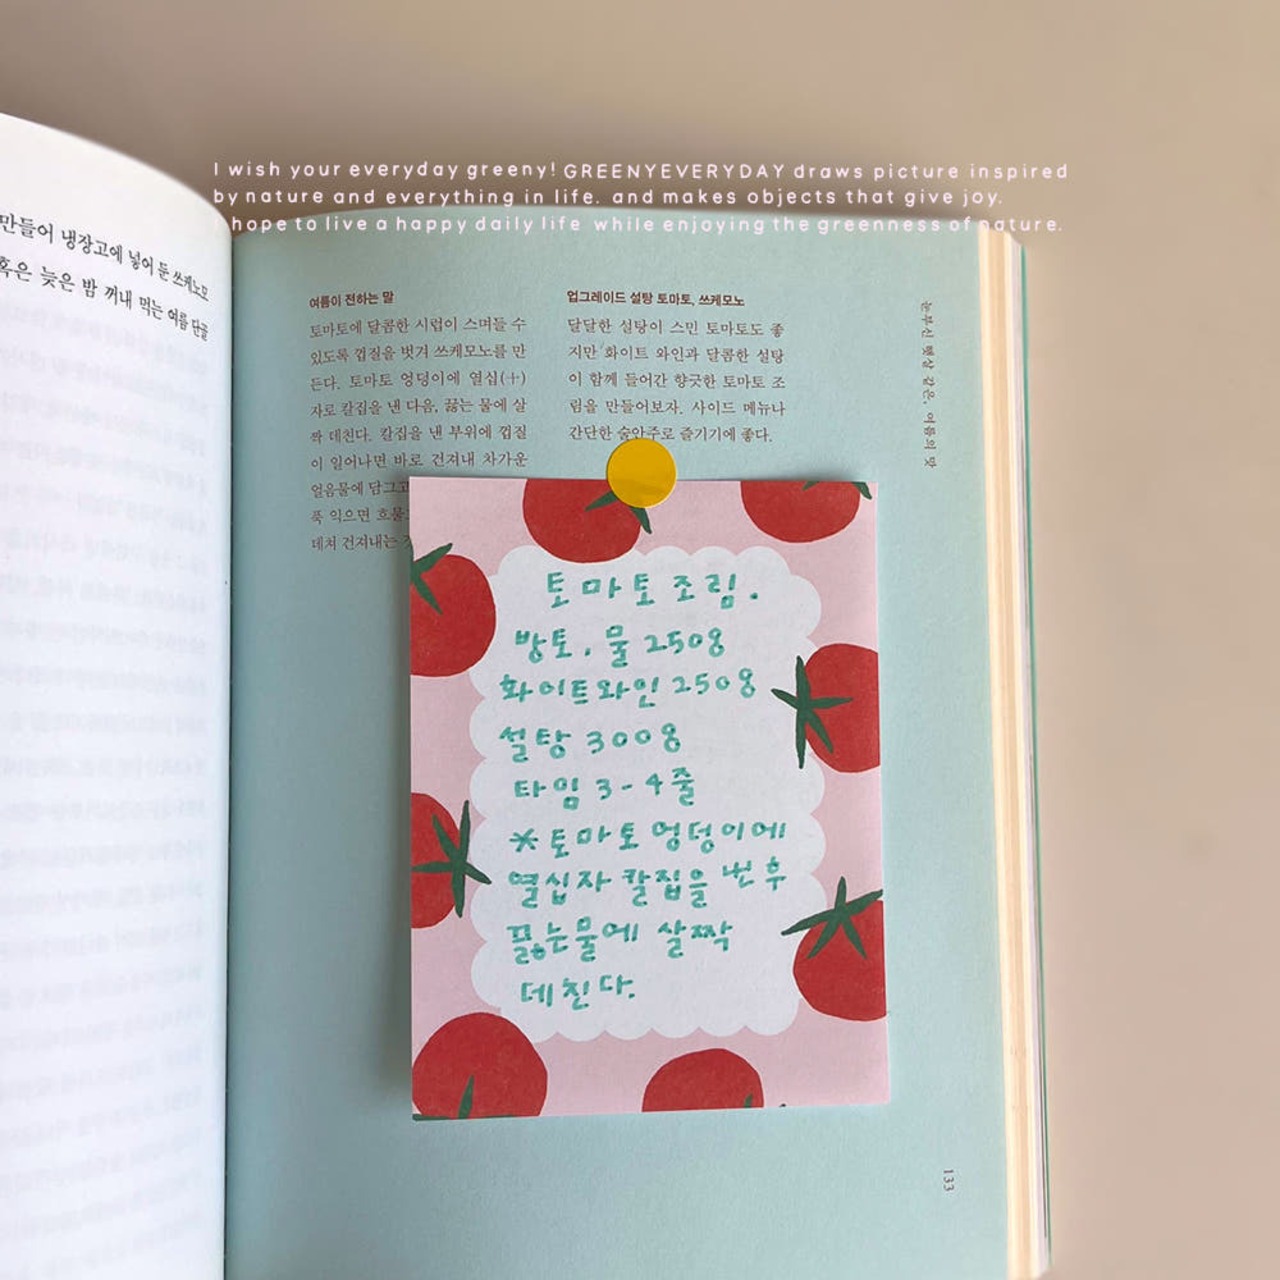 I wish your everyday greeny! GREENYEVERYDAY draws picture inspired
by nature and everything in life. and makes objects that give joy.
I hope to live a happy daily life while enjoying the greenness of nature.
만들어 냉장고에 넣어 둔 쓰케모노
혹은 늦은 밤 꺼내 먹는 여름 단골
여름이 전하는 말
토마토에 달콤한 시럽이 스며들 수
있도록 껍질을 벗겨 쓰케모노를 만
든다. 토마토 엉덩이에 열십(十)
자로 칼집을 낸 다음, 끓는 물에 살
짝 데친다. 칼집을 낸 부위에 껍질
이 일어나면 바로 건져내 차가운
얼음물에 담그고
푹 익으면 흐물
데쳐 건져내는
업그레이드 설탕 토마토, 쓰케모노
달달한 설탕이 스민 토마토도 좋
지만 화이트 와인과 달콤한 설탕
이 함께 들어간 향긋한 토마토 조
림을 만들어보자. 사이드 메뉴나
간단한 술안주로 즐기기에 좋다.
눈부신 햇살 같은, 여름의 맛
토마토조림.
방토, 물 250g
화이트와인 250g
설탕 300g
타임 3-4줄
*토마토 엉덩이에
열십자 칼집을 낸 후
끓는물에 살짝
데친다.
133